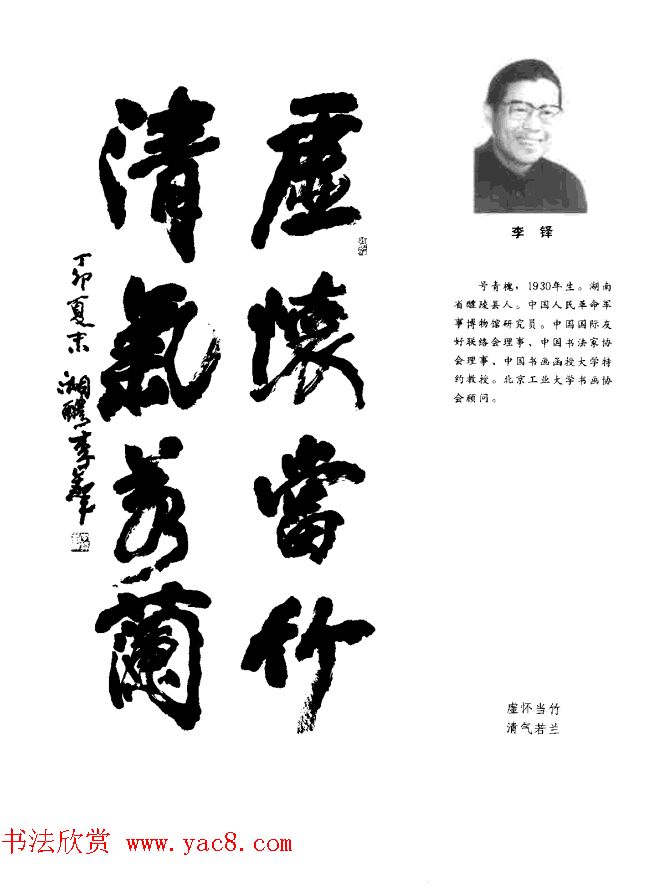 虛懷當竹
清氣若蘭
丁卯夏末 湘醴 李鐸
李 铎
号青槐，1930年生。湖南
省醴陵县人。中国人民革命军
事博物馆研究员。中国国际友
好联络会理事、中国书法家协
会理事、中国书画函授大学特
约教授。北京工业大学书画协
会顾问。
虚怀当竹
清气若兰
书法欣赏 www.yac8.com